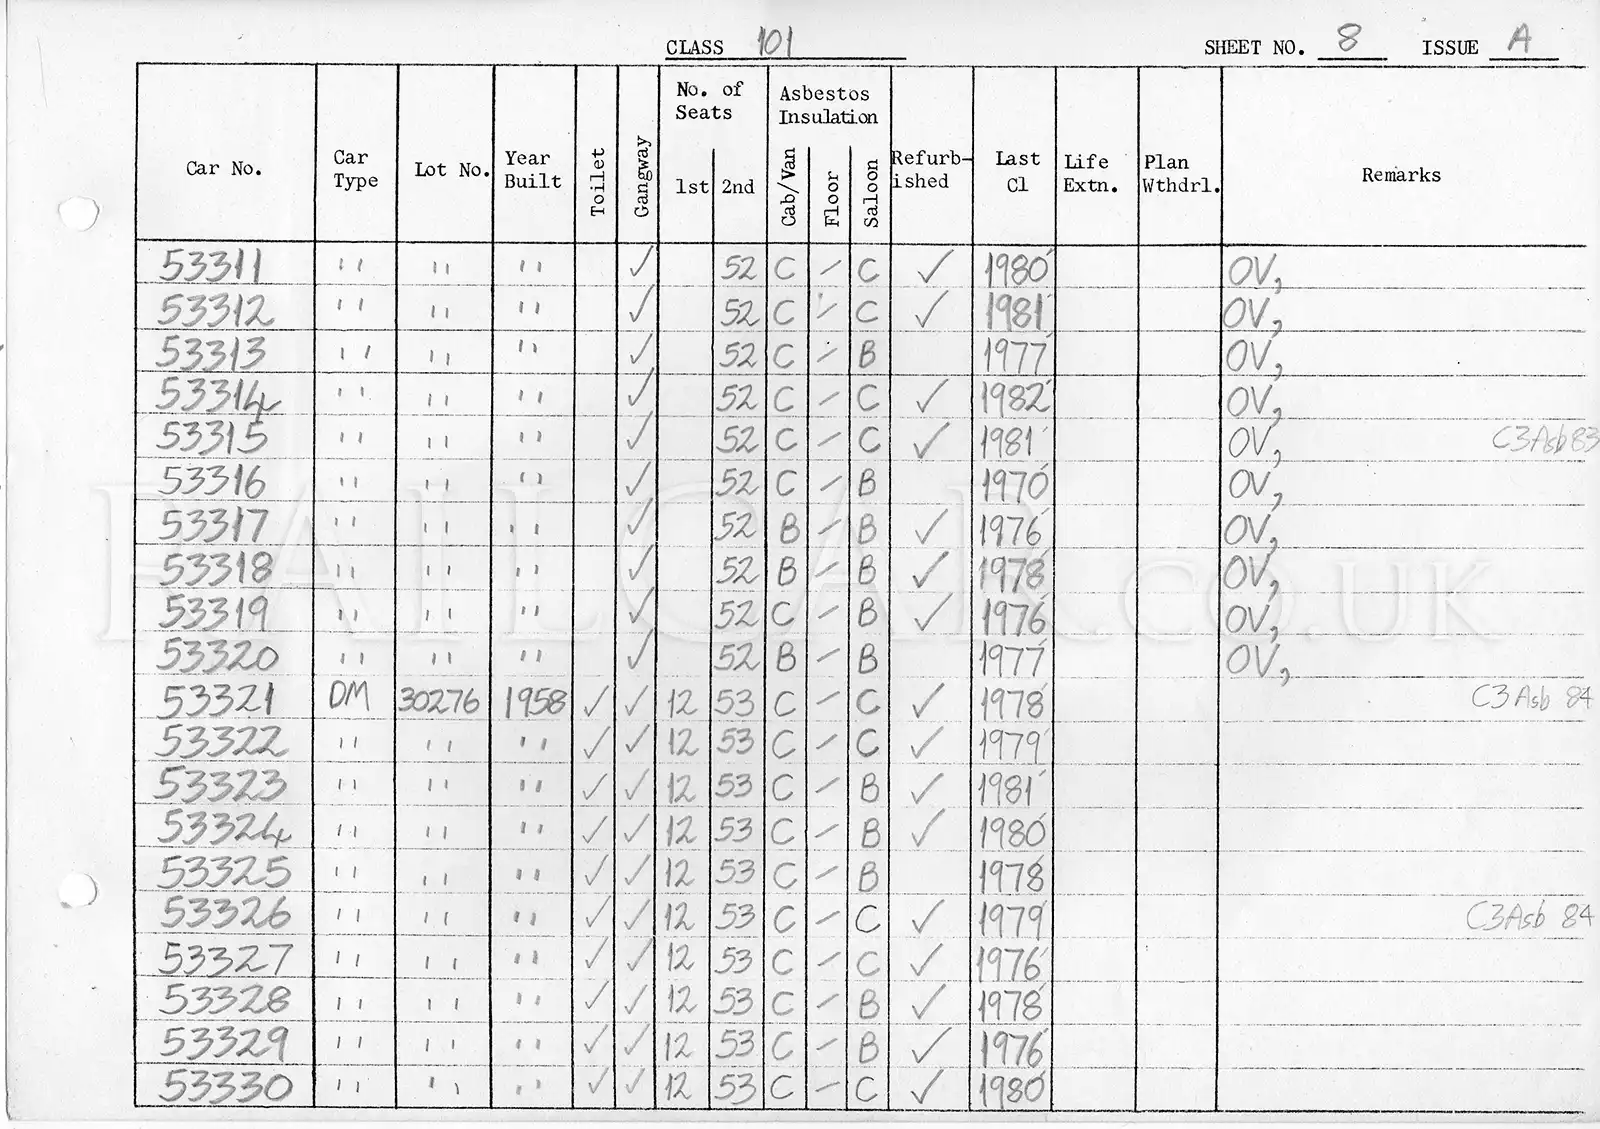 CLASS 101 SHEET NO. 8 ISSUE A
Car No. Car Type Lot No. Year Built Toilet Gangway No. of Seats 1st 2nd Asbestos Insulation Cab/Van Floor Saloon Refurb-ished Last Cl Life Extn. Plan Wthdrl. Remarks
53311 " " " ✓ 52 C / C ✓ 1980 OV,
53312 " " " ✓ 52 C / C ✓ 1981 OV,
53313 " " " ✓ 52 C / B 1977 OV,
53314 " " " ✓ 52 C / C ✓ 1982 OV,
53315 " " " ✓ 52 C / C ✓ 1981 OV, C3Asb83
53316 " " " ✓ 52 C / B 1970 OV,
53317 " " " ✓ 52 B / B ✓ 1976 OV,
53318 " " " ✓ 52 B / B ✓ 1978 OV,
53319 " " " ✓ 52 C / B ✓ 1976 OV,
53320 " " " ✓ 52 B / B 1977 OV,
53321 DM 30276 1958 ✓ ✓ 12 53 C / C ✓ 1978 C3 Asb 84
53322 " " " ✓ ✓ 12 53 C / C ✓ 1979
53323 " " " ✓ ✓ 12 53 C / B ✓ 1981
53324 " " " ✓ ✓ 12 53 C / B ✓ 1980
53325 " " " ✓ ✓ 12 53 C / B 1978
53326 " " " ✓ ✓ 12 53 C / C ✓ 1979 C3Asb 84
53327 " " " ✓ ✓ 12 53 C / C ✓ 1976
53328 " " " ✓ ✓ 12 53 C / B ✓ 1978
53329 " " " ✓ ✓ 12 53 C / B ✓ 1976
53330 " " " ✓ ✓ 12 53 C / C ✓ 1980
RAILCAR.co.uk